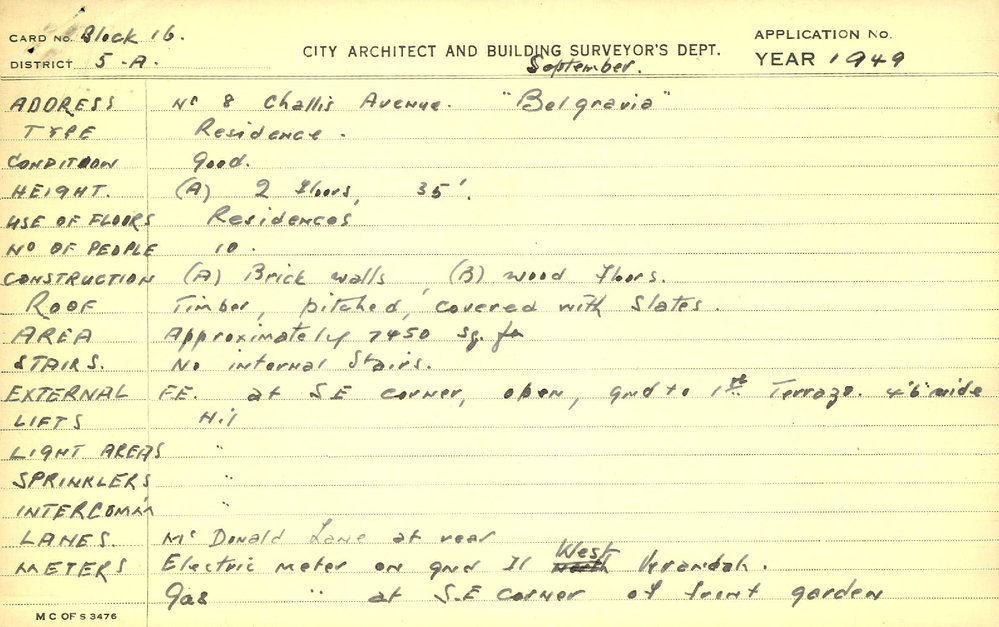 CARD No. Block 16.
DISTRICT 5-A.
CITY ARCHITECT AND BUILDING SURVEYOR'S DEPT.
September.
APPLICATION No.
YEAR 1949
ADDRESS No 8 Challis Avenue. "Belgravia"
TYPE Residence.
CONDITION Good.
HEIGHT. (A) 2 floors, 35'.
USE OF FLOORS Residences
No OF PEOPLE 10.
CONSTRUCTION (A) Brick walls, (B) wood floors.
ROOF Timber, pitched, covered with Slates.
AREA Approximately 7450 sq. ft
STAIRS. No internal Stairs.
EXTERNAL F.E. at S.E corner, open, gnd to 1st Terrazo. 4'6" wide
LIFTS Nil
LIGHT AREAS "
SPRINKLERS "
INTERCOMM "
LANES. Mc Donald Lane at rear
METERS Electric meter on gnd fl North West Verandah.
Gas " at S.E corner of front garden
M C OF S 3476